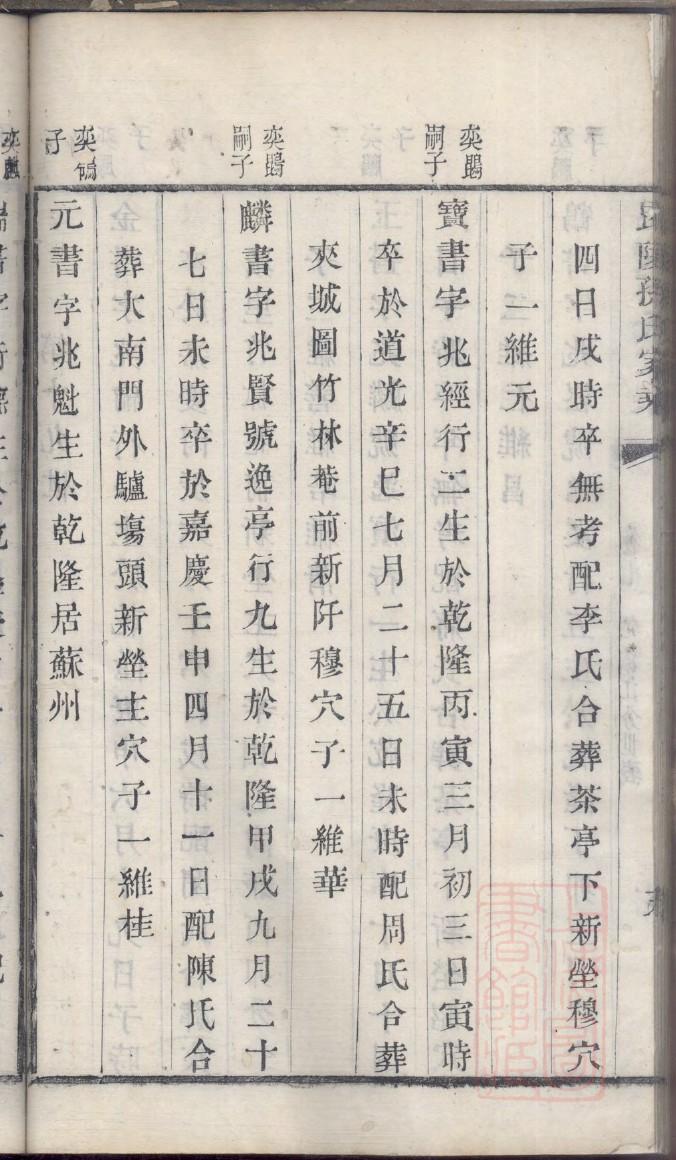 四日戌時卒無考配李氏合葬茶亭下新塋穆穴
子一維元
奕鵾
嗣子
寶書字兆經行二生於乾隆丙寅三月初三日寅時
卒於道光辛巳七月二十五日未時配周氏合葬
夾城圖竹林菴前新阡穆穴子一維華
奕鵾
嗣子
麟書字兆賢號逸亭行九生於乾隆甲戌九月二十
七日未時卒於嘉慶壬申四月十一日配陳氏合
葬大南門外驢塲頭新塋主穴子一維桂
奕鵷
子
元書字兆魁生於乾隆居蘇州